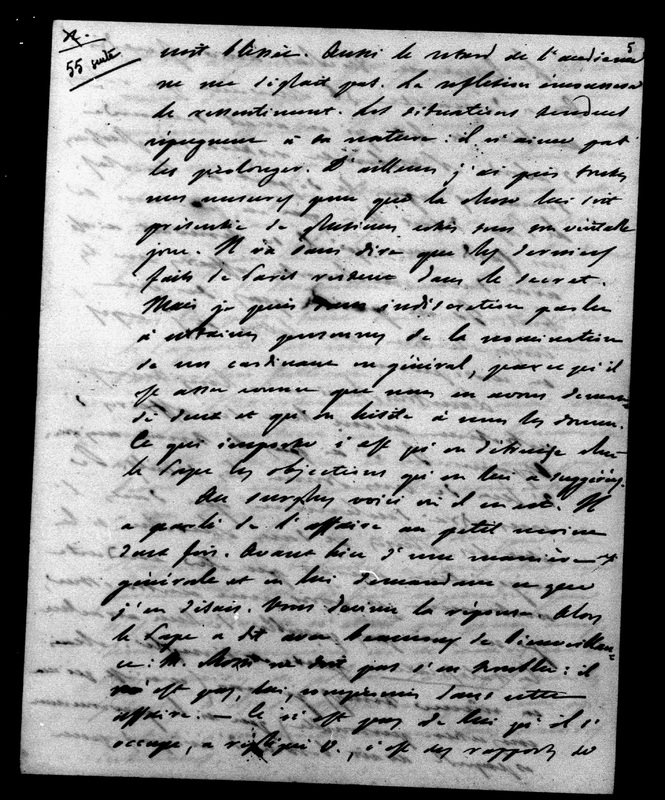 55 suite
5
soit blessée. Aussi le retard de l'audience
ne me déplait pas. La réflexion émoussera
le ressentiment. Les situations tendues
répugnent à sa nature : il n'aime pas
les prolonger. D'ailleurs j'ai pris toutes
mes mesures pour que la chose lui soit
présentée de plusieurs côtés sous son véritable
jour. Il va sans dire que les derniers
faits de Paris restent dans le secret.
Mais je puis sans indiscrétion parler
à certaines personnes de la nomination
de nos cardinaux en général, parce qu'il
est assez connu que nous en avons deman-
dé deux et qu'on hésite à nous les donner.
Ce qui importe c'est qu'on détruise chez
le Pape les objections qu'on lui a suggérées.
Au surplus voici où il en est. Il
a parlé de l'affaire au petit moine
deux fois. Avant hier d'une manière
générale et en lui demandant ce que
j'en disais. Vous devinez la réponse. Alors
le Pape a dit avec beaucoup de bienveillan-
ce : M. Rossi ne doit pas s'en troubler : il
n'est pas, lui, compromis dans cette
affaire. — Ce n'est pas de lui qu'il s'
occupe, a répliqué V., c'est des rapports de